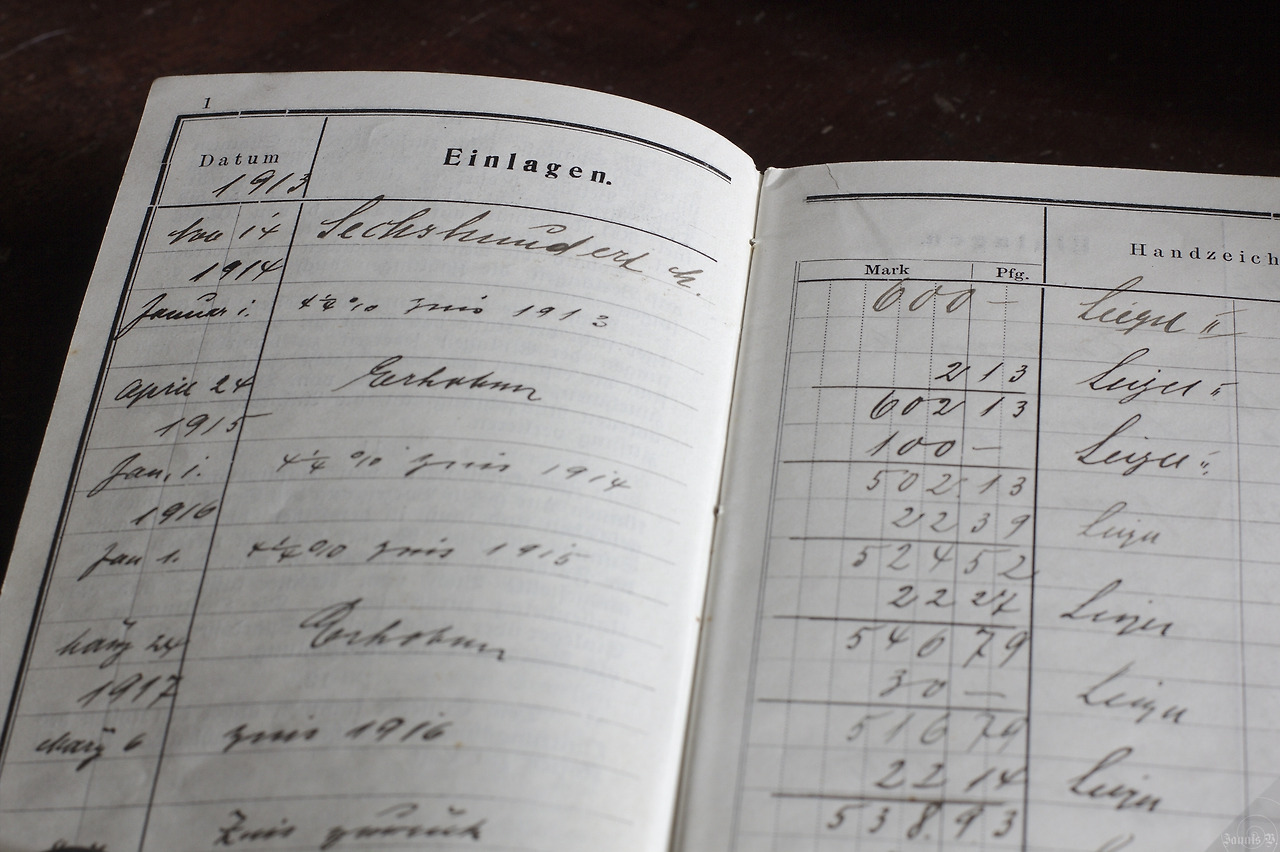 1
Datum
Einlagen.
1913
Nov 14 Sechshundert M.
1914
Januar 1. 4¼% Zins 1913
April 24 Erhoben
1915
Jan. 1. 4¼% Zins 1914
1916
Jan 1. 4¼% Zins 1915
März 24 Erhoben
1917
März 6 Zins 1916
Zins zurück
Handzeich
Mark Pfg.
600 —
2 13
602 13
100 —
502 13
22 39
524 52
22 27
546 79
30 —
516 79
22 14
538 93